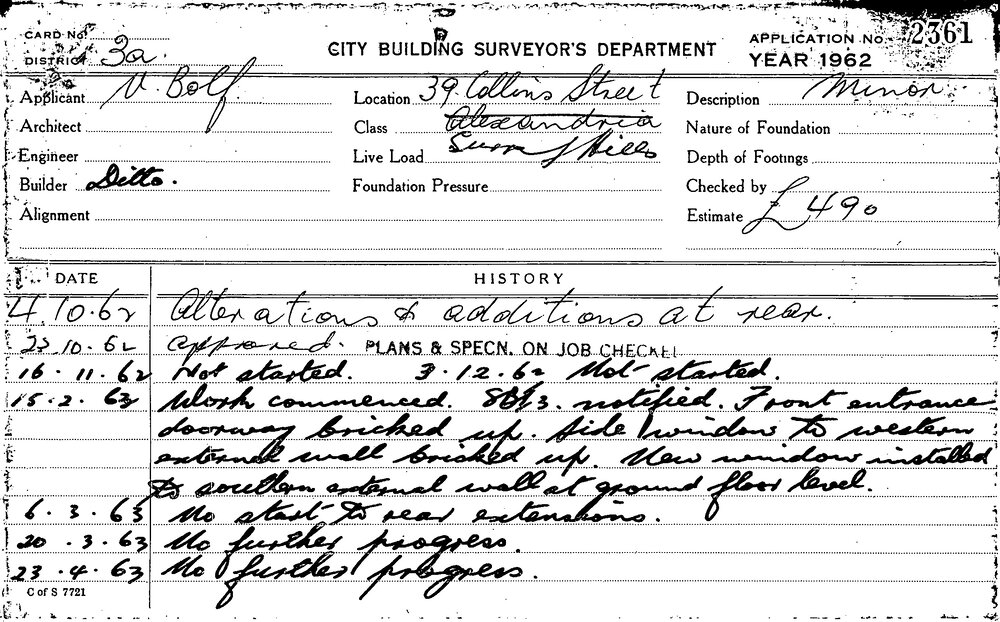 CARD No.
DISTRICT 3a.
CITY BUILDING SURVEYOR'S DEPARTMENT
APPLICATION No. 2361
YEAR 1962
Applicant V. Bolf
Location 39 Collins Street
Description Minor
Architect
Class Alexandria
Nature of Foundation
Engineer
Live Load Surry Hills
Depth of Footings
Builder Ditto.
Foundation Pressure
Checked by
Alignment
Estimate £490
DATE HISTORY
4.10.62 Alterations & additions at rear.
23.10.62 approved. PLANS & SPECN. ON JOB CHECKED
16.11.62 Not started. 3.12.62 Not started.
15.2.63 Work commenced. notified. Front entrance
doorway bricked up. Side window to western
external wall bricked up. New window installed
to southern external wall at ground floor level.
6.3.63 No start to rear extensions.
20.3.63 No further progress.
23.4.63 No further progress.
C of S 7721